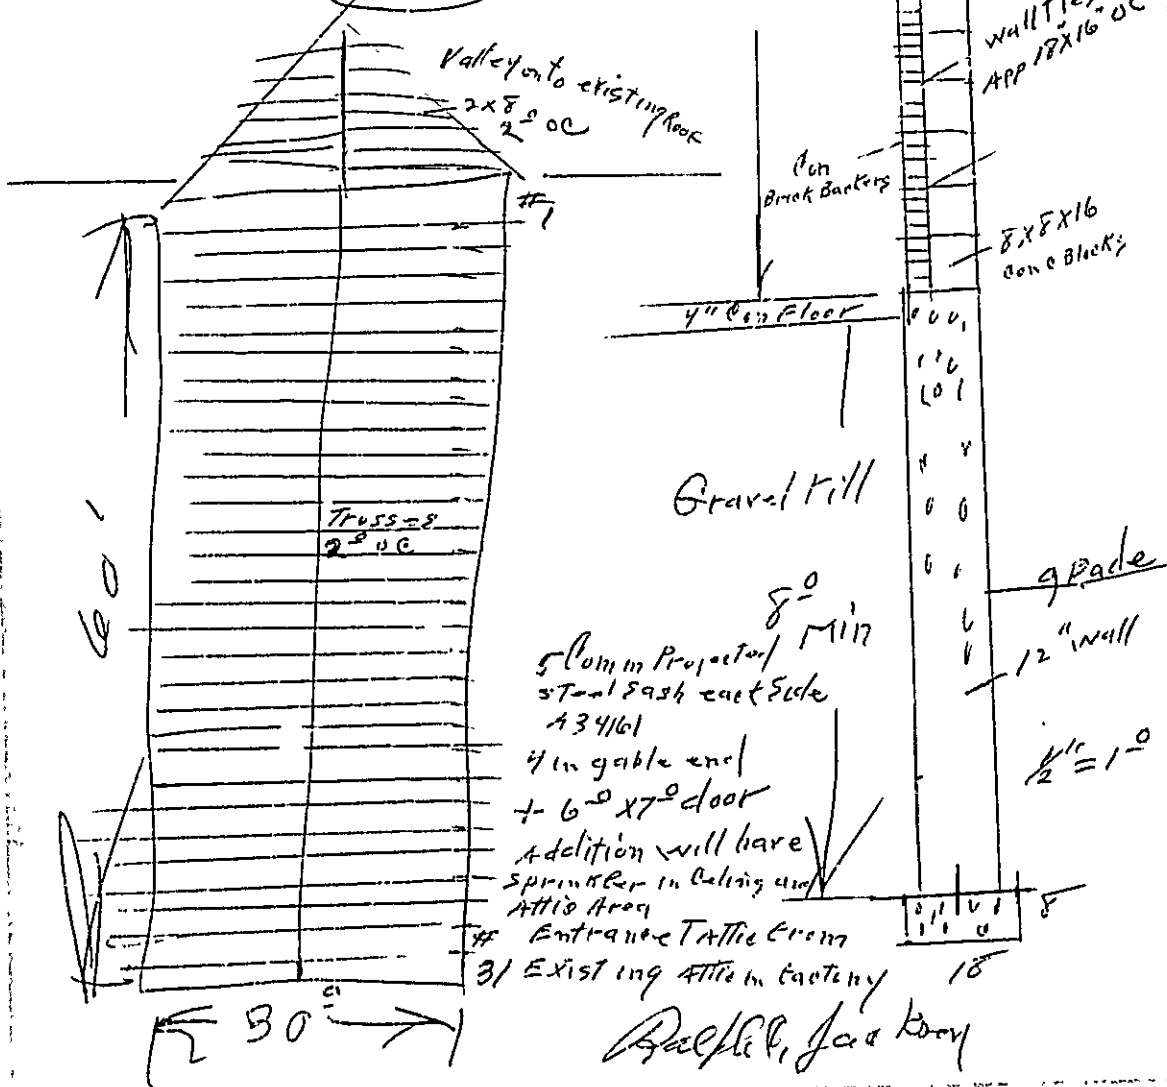 Valley onto existing Roof
2x8
2º OC
#1
60'
Truss-s
2º OC
30º
Wall Ties
APP 18"X16" OC
Con
Brick Backers
8X8X16
Conc Blocks
4" Con Floor
Gravel Fill
8º
Min
grade
12" Wall
1/2" = 1º
8
18
5 Comm Projected
Steel Sash each Side
A34161
4 in gable end
1- 6º X7º door
Addition will have
Sprinkler in Celing and
Attic Area
# Entrance T Attic From
31 Existing Attic in Factory